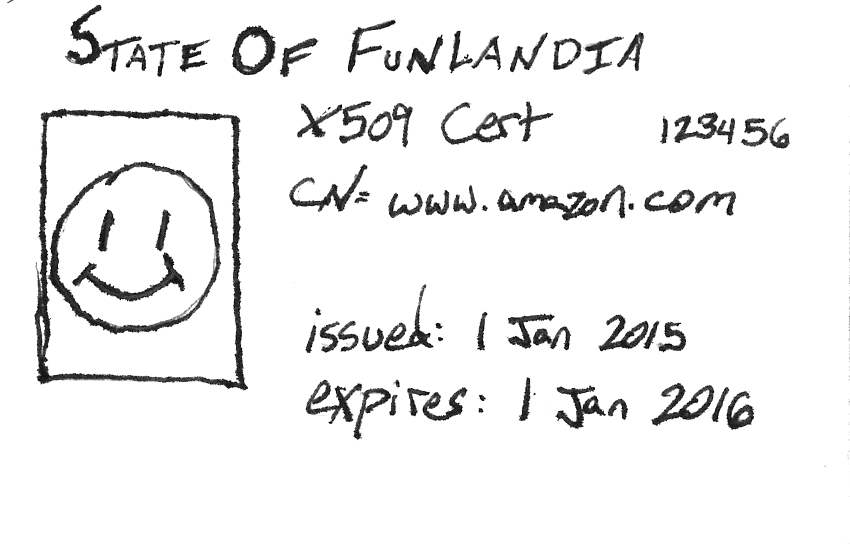 STATE OF FUNLANDIA
X509 Cert 123456
CN= www.amazon.com
issued: 1 Jan 2015
expires: 1 Jan 2016